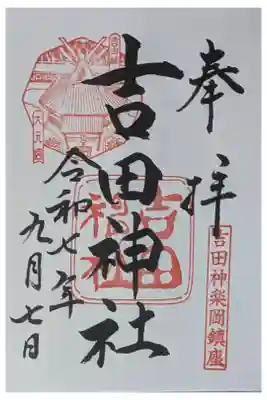 奉拝
吉田神楽岡鎮座
吉田神社
吉田神社
令和七年
九月七日
吉田
大元宮